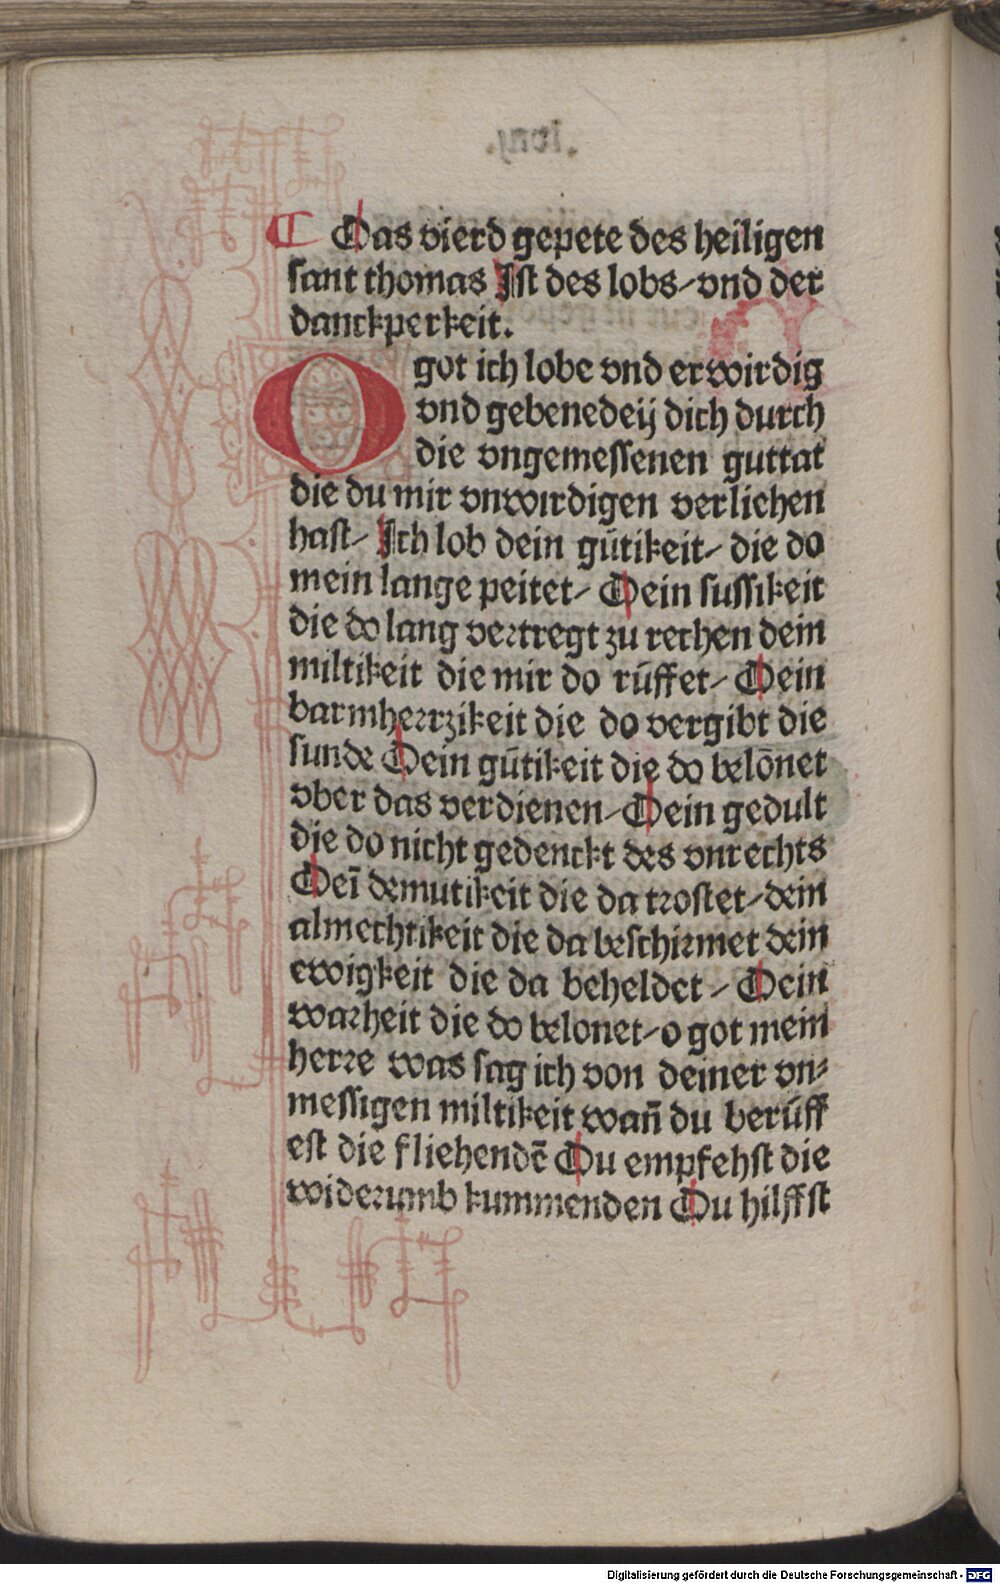 ¶ Das vierd gepete des heiligen
sant thomas Ist des lobs/ vnd der
danckperkeit.
O got ich lobe vnd erwirdig
vnd gebenedeij dich durch
die vngemessenen guttat
die du mir vnwirdigen verlichen
hast/ Ich lob dein gütikeit/ die do
mein lange peitet/ Dein sussikeit
die do lang vertregt zu rechen dein
miltikeit die mir do rüffet/ Dein
barmherrzikeit die do vergibt die
sunde Dein gütikeit die do belōnet
vber das verdienen/ Dein gedult
die do nicht gedenckt des vnrechts
Deī demutikeit die da trostet/ dein
almechtikeit die da beschirmet dein
ewigkeit die da beheldet/ Dein
warheit die do belonet/ o got mein
herre was sag ich von deiner vn⸗
messigen miltikeit wañ du berüff
est die fliehendē Du empfehst die
widerumb kummenden Du hilffst
Digitalisierung gefördert durch die Deutsche Forschungsgemeinschaft - DFG